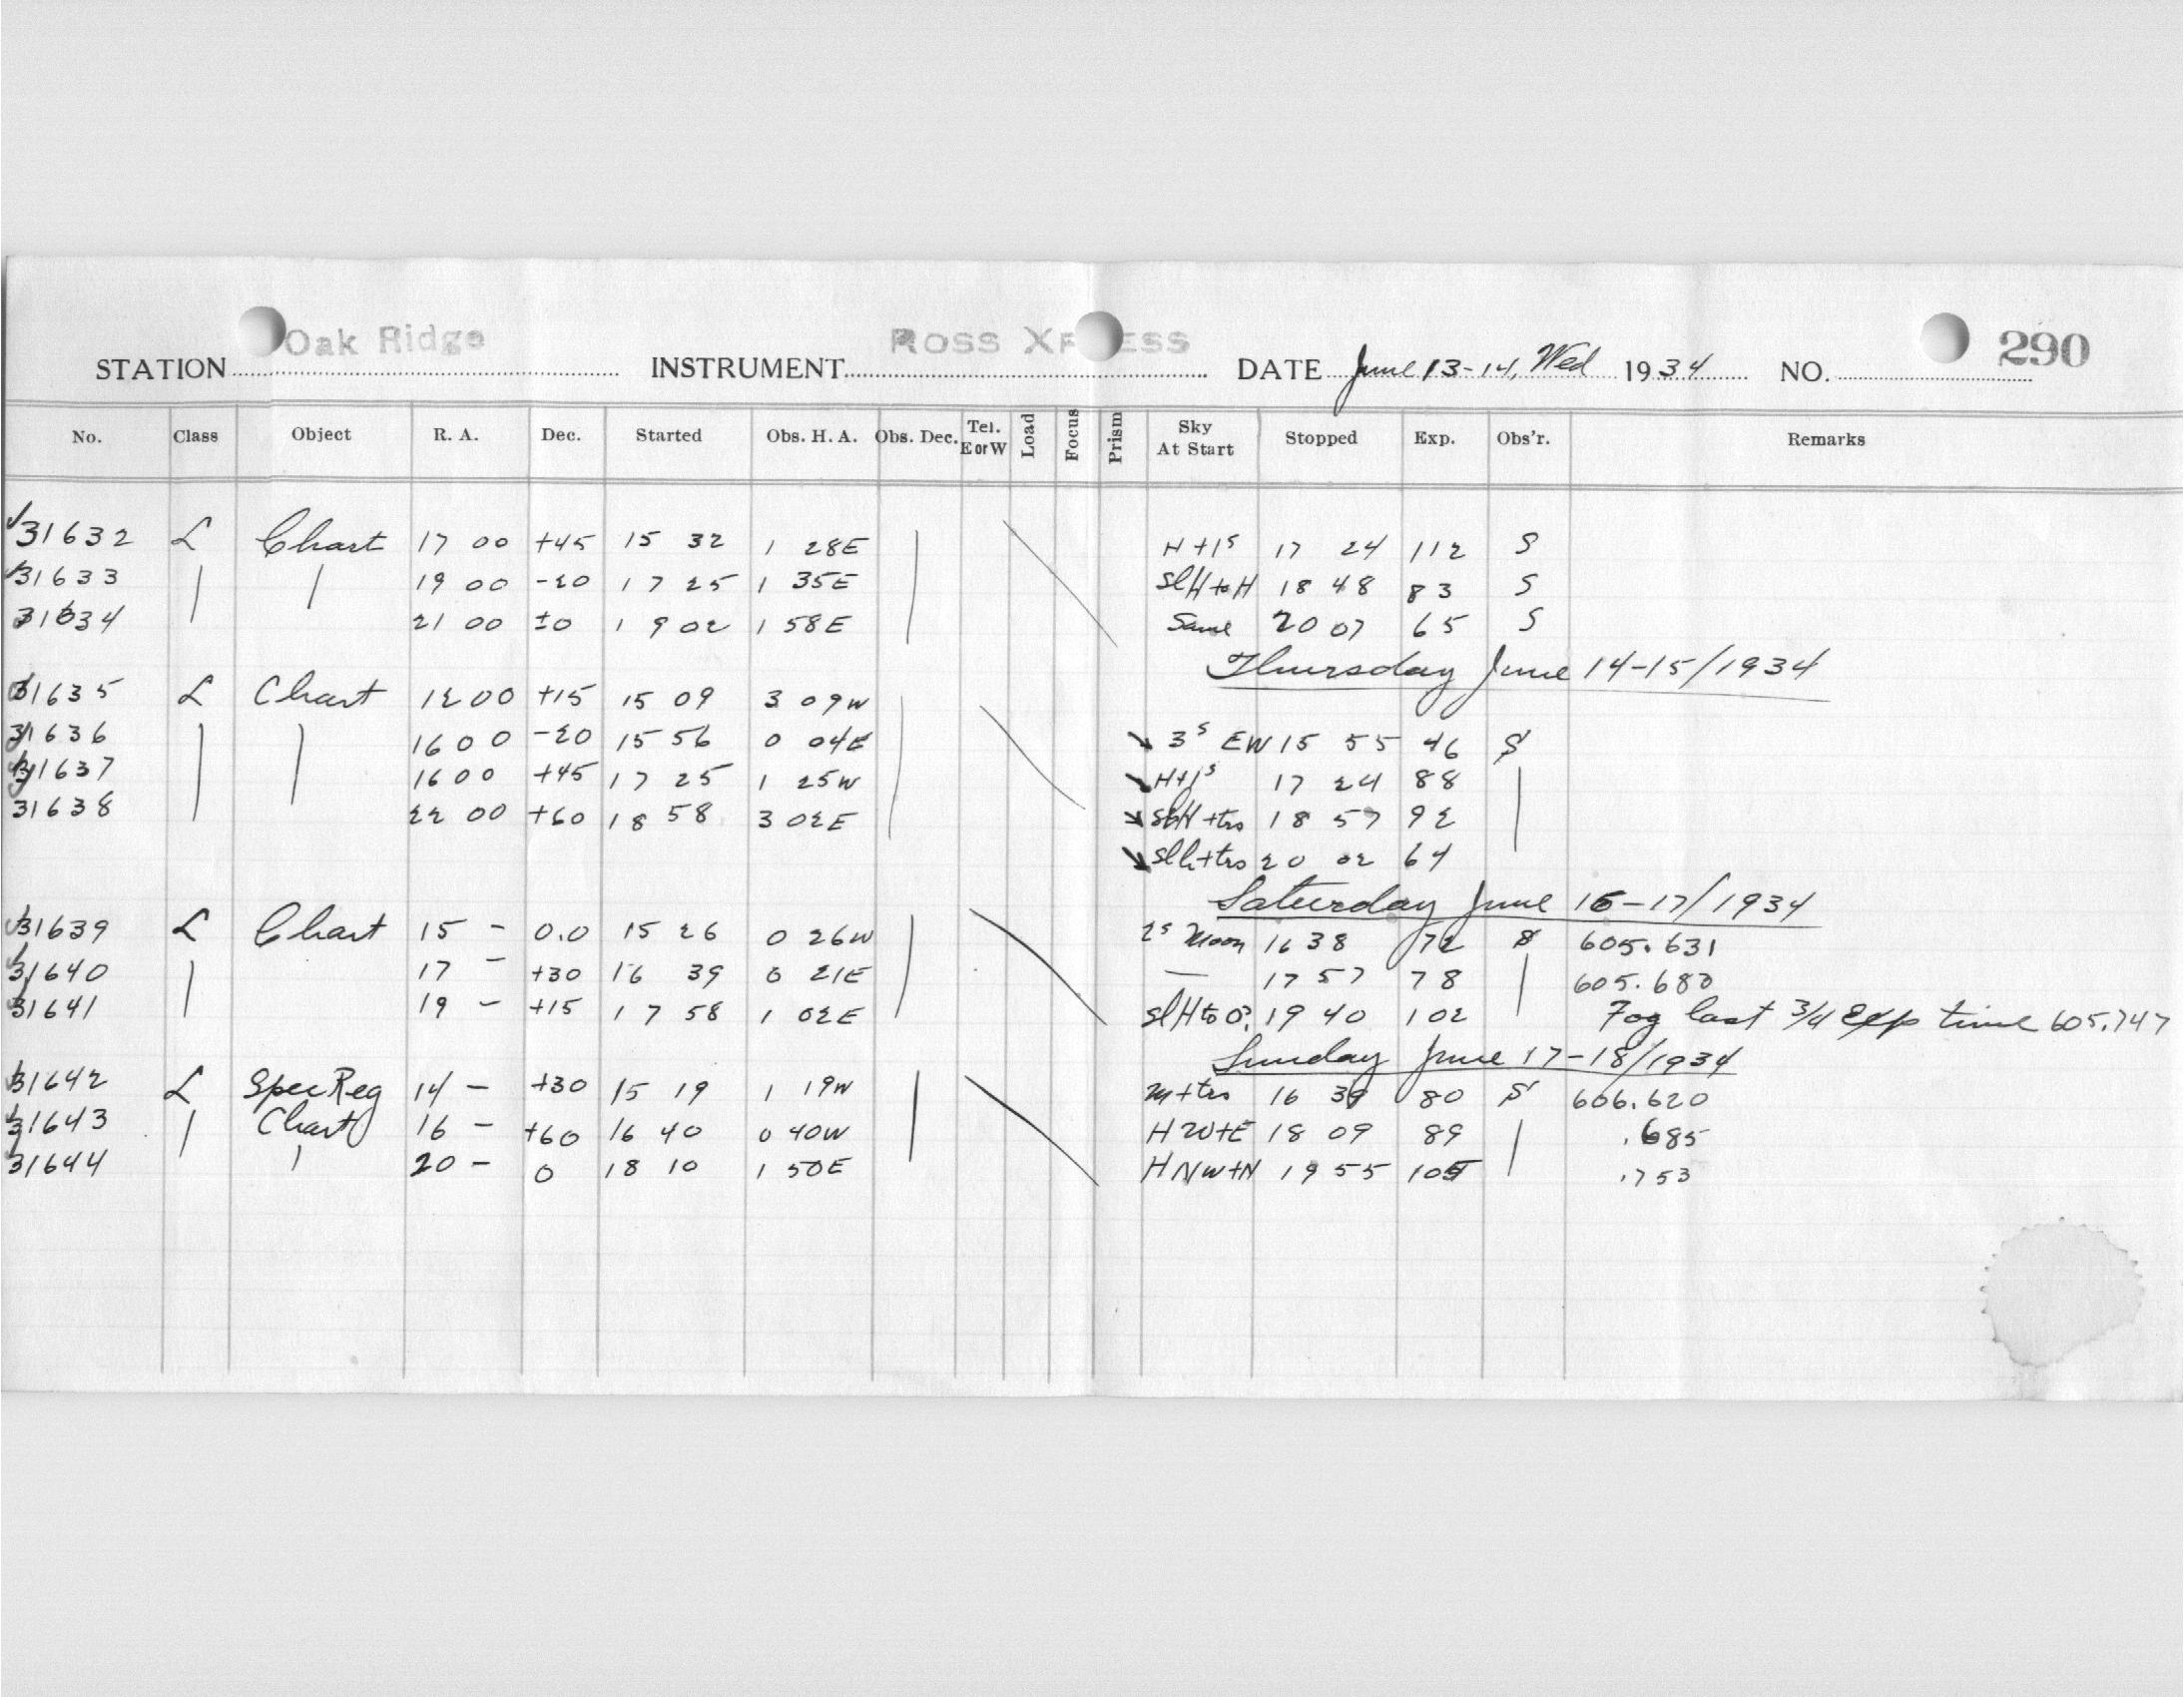 Oak Ridge ROSS XP ESS 290
STATION INSTRUMENT DATE June 13-14, Wed 1934 NO.
No. Class Object R. A. Dec. Started Obs. H. A. Obs. Dec. Tel. E or W Load Focus Prism Sky At Start Stopped Exp. Obs'r. Remarks
31632 L Chart 17 00 +45 15 32 1 28E H+1s 17 24 112 S
31633 19 00 -20 17 25 1 35E slH to H 18 48 83 S
31634 21 00 ±0 19 02 1 58E Same 20 07 65 S
Thursday June 14-15/1934
31635 L Chart 12 00 +15 15 09 3 09W 3s EW 15 55 46 S
31636 16 00 -20 15 56 0 04E H+1s 17 24 88
31637 16 00 +45 17 25 1 25W slH+trs 18 57 92
31638 22 00 +60 18 58 3 02E slh+trs 20 02 64
Saturday June 16-17/1934
31639 L Chart 15 - 0.0 15 26 0 26W 2s Moon 16 38 72 S 605.631
31640 17 - +30 16 39 0 21E — 17 57 78 605.680
31641 19 - +15 17 58 1 02E slH to O? 19 40 102 Fog last 3/4 Exp time 605.747
Sunday June 17-18/1934
31642 L Spec Reg 14 - +30 15 19 1 19W m+trs 16 39 80 S 606.620
31643 Chart 16 - +60 16 40 0 40W H W+E 18 09 89 .685
31644 20 - 0 18 10 1 50E H NW+N 19 55 105 .753